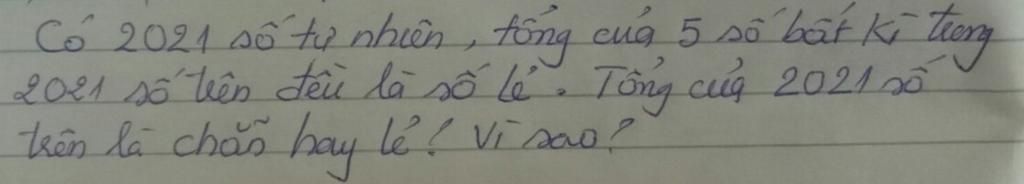 Có 2021 số tự nhiên, tổng của 5 số bất kì trong
2021 số trên đều là số lẻ. Tổng của 2021 số
trên là chẵn hay lẻ? Vì sao?